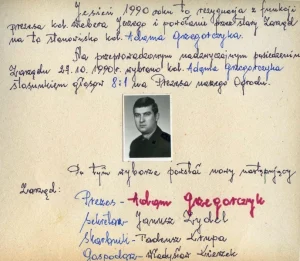 Jesień 1990 roku to rezygnacja z funkcji
prezesa kol. Zebera Jerzego i powołanie przez stary Zarząd
na to stanowisko kol. Adama Grzegorczyka.
Na przeprowadzonym nadzwyczajnym posiedzeniu
Zarządu 27.10.1990r wybrano kol. Adama Grzegorczyka
stosunkiem głosów 8:1 na Prezesa naszego Ogrodu.
Po tym wyborze powstał nowy następujący
Zarząd:
Prezes - Adam Grzegorczyk
Sekretarz - Janusz Zydel
Skarbnik - Tadeusz Krupa
Gospodarz - Władysław